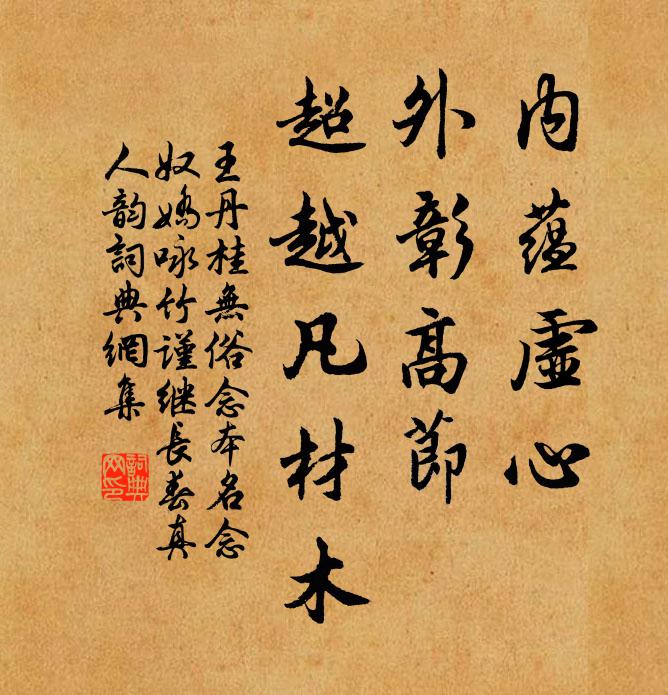 内蕴虛心
外彰高節
超越凡材木
王丹桂無俗念本名念
奴嬌咏竹谨继長春真
人韵詞典網集
詞典網印